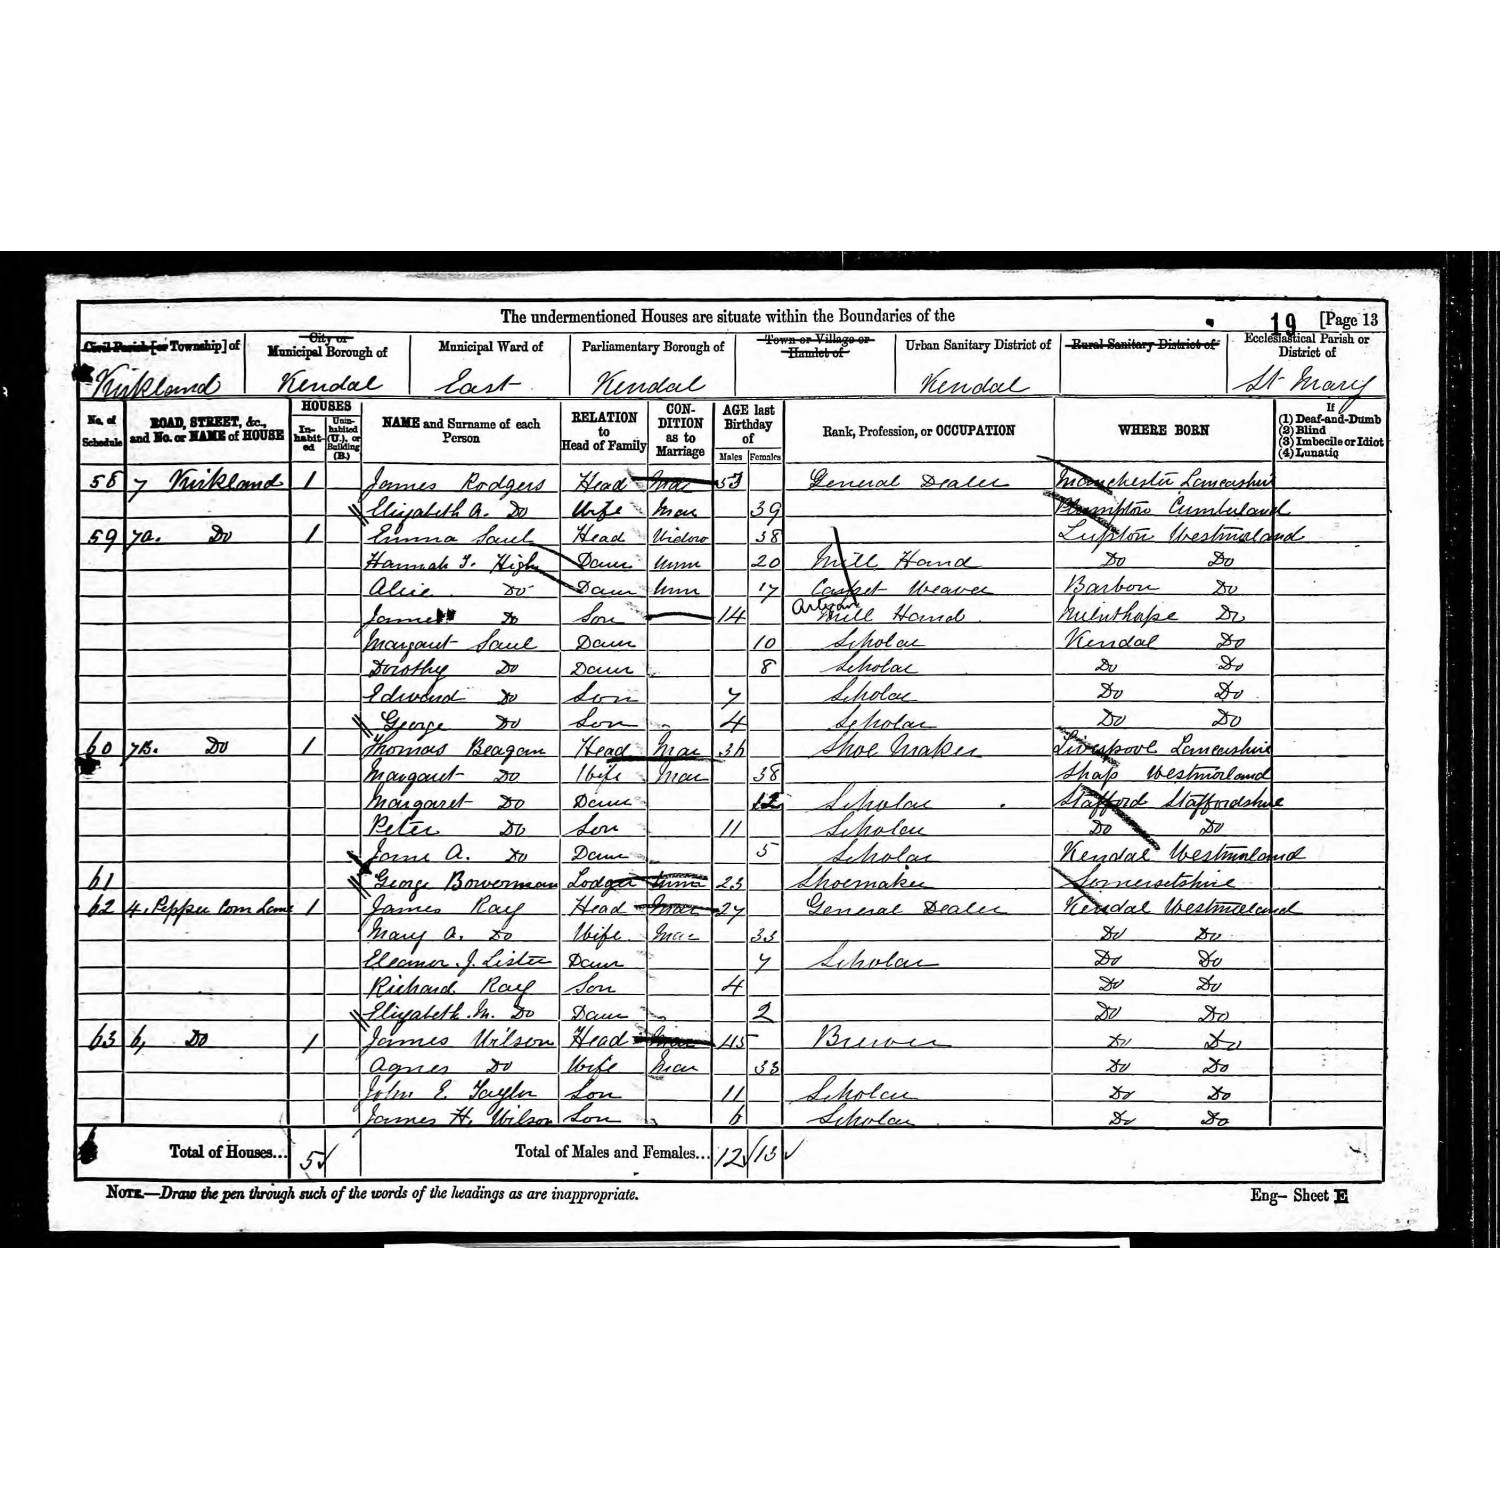 The undermentioned Houses are situate within the Boundaries of the 19 [Page 13
Civil Parish [or Township] of City or Municipal Borough of Municipal Ward of Parliamentary Borough of Town or Village or Hamlet of Urban Sanitary District of Rural Sanitary District of Ecclesiastical Parish or District of
Kirkland Kendal East Kendal Kendal St Mary
No. of Schedule ROAD, STREET, &c., and No. or NAME of HOUSE HOUSES Inhabited Uninhabited (U.), or Building (B.) NAME and Surname of each Person RELATION to Head of Family CONDITION as to Marriage AGE last Birthday of Males Females Rank, Profession, or OCCUPATION WHERE BORN If (1) Deaf-and-Dumb (2) Blind (3) Imbecile or Idiot (4) Lunatic
58 7 Kirkland 1 James Rodgers Head Mar 53 General Dealer Manchester Lancashire
Elizabeth A. Do Wife Mar 39 Plumpton Cumberland
59 7a. Do 1 Emma Saul Head Widow 38 Lupton Westmorland
Hannah T. High Daur Unm 20 Mill Hand Do Do
Alice Do Daur Unm 17 Carpet Weaver Barbon Do
James Do Son 14 Artizan Mill Hand Milnthorpe Do
Margaret Saul Daur 10 Scholar Kendal Do
Dorothy Do Daur 8 Scholar Do Do
Edward Do Son 7 Scholar Do Do
George Do Son 4 Scholar Do Do
60 7B. Do 1 Thomas Beagan Head Mar 36 Shoe Maker Liverpool Lancashire
Margaret Do Wife Mar 38 Shap Westmorland
Margaret Do Daur 12 Scholar Stafford Staffordshire
Peter Do Son 11 Scholar Do Do
Jane A. Do Daur 5 Scholar Kendal Westmorland
61 George Bowerman Lodger Unm 23 Shoemaker Somersetshire
62 4, Pepper Corn Lane 1 James Ray Head Mar 27 General Dealer Kendal Westmorland
Mary A. Do Wife Mar 33 Do Do
Eleanor J. Lister Daur 7 Scholar Do Do
Richard Ray Son 4 Do Do
Elizabeth M. Do Daur 2 Do Do
63 6, Do 1 James Wilson Head Mar 45 Brewer Do Do
Agnes Do Wife Mar 33 Do Do
John E. Taylor Son 11 Scholar Do Do
James H. Wilson Son 6 Scholar Do Do
Total of Houses... 5 Total of Males and Females... 12 13
NOTE.—Draw the pen through such of the words of the headings as are inappropriate. Eng- Sheet E